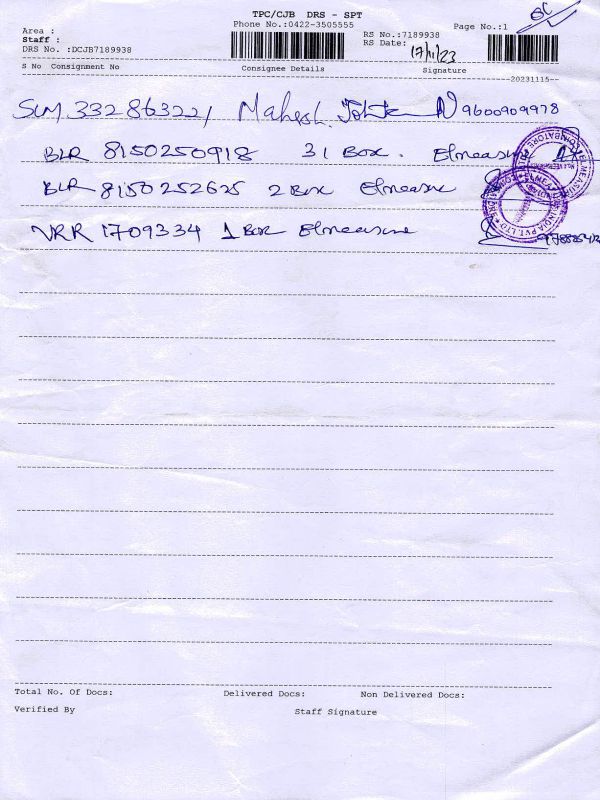 TPC/CJB DRS - SPT
Phone No.:0422-3505555
Page No.:1
Area :
Staff :
DRS No. :DCJB7189938
RS No.:7189938
RS Date: 17/11/23
S No Consignment No Consignee Details Signature
20231115
SLM 332863221 Mahesh 9600909978
BLR 8150250918 31 Box. Elmeasure
BLR 8150252625 2 Box Elmeasure
VRR 1709334 1 Box Elmeasure
Total No. Of Docs: Delivered Docs: Non Delivered Docs:
Verified By Staff Signature